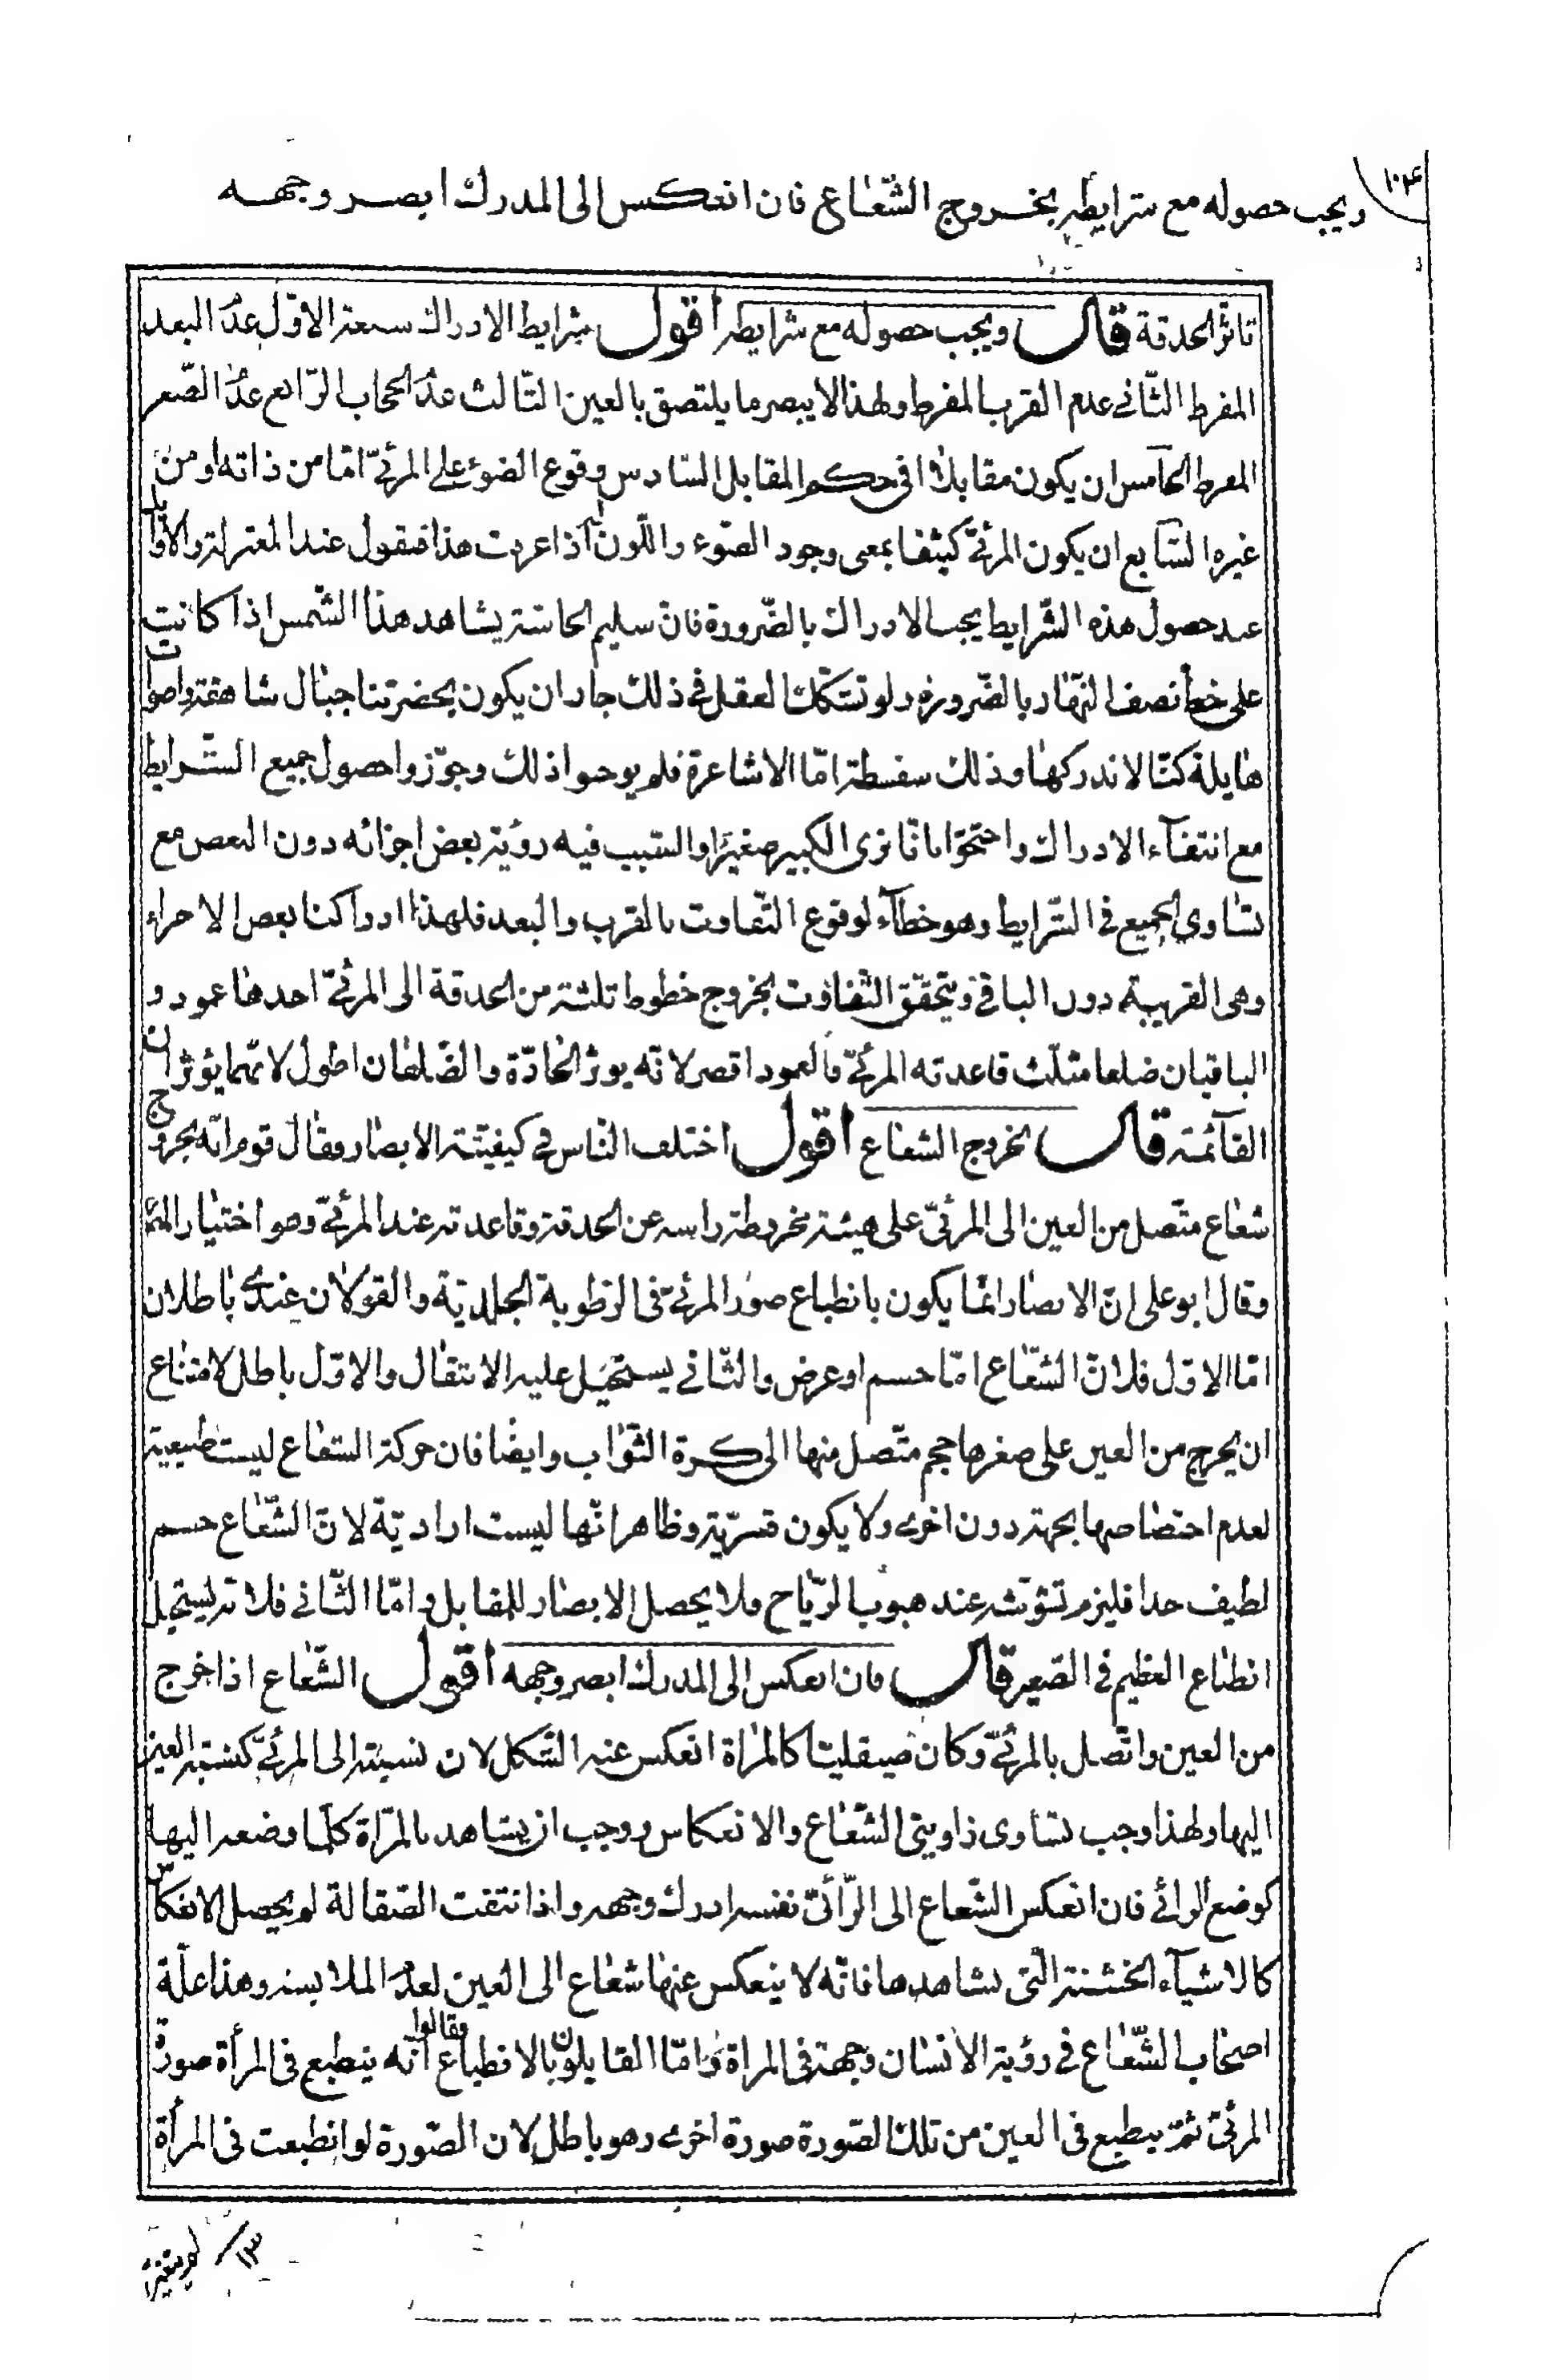 ١٠٤
ويجب حصوله مع شرايطه بخروج الشّعاع فان انعكس الى المدرك ابصر وجهه
تاثر الحدقة قال ويجب حصوله مع شرايطه اقول شرايط الادراك سبعة الاوّل عدم البعد
المفرط الثّانى عدم القرب المفرط ولهذا لا يبصر ما يلتصق بالعين الثّالث عدم الحجاب الرّابع عدم الصّغر
المفرط الخامس ان يكون مقابلا او فى حكم المقابل السّادس وقوع الضوء على المرئىّ امّا من ذاته او من
غيره السّابع ان يكون المرئىّ كثيفا بمعنى وجود الضّوء واللّون اذا عرفت هذا فنقول عند المعتزلة والاوايل
عند حصول هذه الشّرايط يجب الادراك بالضّرورة فانّ سليم الحاسّة يشاهد هذا الشّمس اذا كانت
على خط نصف النّهار بالضّرورة ولو تشكّك العقل فى ذلك جاز ان يكون بحضرتنا جبال شاهقة واصوات
هايلة كنّا لا ندركها وذلك سفسطة امّا الاشاعرة فلم يوجبوا ذلك وجوّزوا حصول جميع الشّرايط
مع انتفآء الادراك واحتجّوا بانّا نرى الكبير صغيرا والسّبب فيه رؤية بعض اجزائه دون البعض مع
تساوى الجميع فى الشّرايط وهو خطآء لوقوع التّفاوت بالقرب والبعد فلهذا ادركنا بعض الاجزاء
وهى القريبة دون الباقى ويتحقّق التّفاوت بخروج خطوط ثلثة من الحدقة الى المرئىّ احدها عمود و
الباقيان ضلعا مثلّث قاعدته المرئىّ فالعمود اقصر لانّه يوتر الحادّة والضّلعان اطول لانّهما يوتران
القآئمة قال بخروج الشعاع اقول اختلف النّاس فى كيفيّة الابصار وقال قوم انّه بخروج
شعاع متّصل من العين الى المرئىّ على هيئة مخروطة راسه عن الحدقة وقاعدته عند المرئىّ وهو اختيار المص
وقال ابو على انّ الابصار انّما يكون بانطباع صور المرئىّ فى الرّطوبة الجليديّة والقولان عندى باطلان
امّا الاوّل فلانّ الشّعاع امّا جسم او عرض والثّانى يستحيل عليه الانتقال والاوّل باطل لامتناع
ان يخرج من العين على صغرها جسم متّصل منها الى كرة الثّوابت وايضا فان حركة الشعاع ليست طبيعية
لعدم اختصاصها بجهة دون اخرى ولا يكون قسريّة وظاهر انّها ليست اراديّة لانّ الشّعاع جسم
لطيف جدا فليزم تشوّشه عند هبوب الرّياح فلا يحصل الابصار للمقابل وامّا الثّانى فلانّه يستحيل
انطباع العظيم فى الصّغير قال فان انعكس الى المدرك ابصر وجهه اقول الشّعاع اذا خرج
من العين واتّصل بالمرئىّ وكان صيقليّا كالمراة انعكس عنه الشكل لان نسبته الى المرئىّ كنسبة العين
اليها ولهذا وجب تساوى زاويتى الشّعاع والانعكاس ووجب ان يشاهد بالمرآة كلّما وضعه اليها
كوضع الرائى فان انعكس الشّعاع الى الرّائىّ نفسه ادرك وجهه واذا انتفت الصّقالة لم يحصل الانعكاس
كالاشيآء الخشنة الّتى نشاهدها فانّه لا ينعكس عنها شعاع الى العين لعدم الملايسة وهذا علّة
اصحاب الشّعاع فى رؤية الانسان وجهه فى المراة وامّا القايلون بالانطباع فقالوا انّه ينطبع فى المرأة صورة
المرئىّ ثمّ ينطبع فى العين من تلك الصّورة صورة اخرى وهو باطل لان الصّورة لو انطبعت فى المرأة